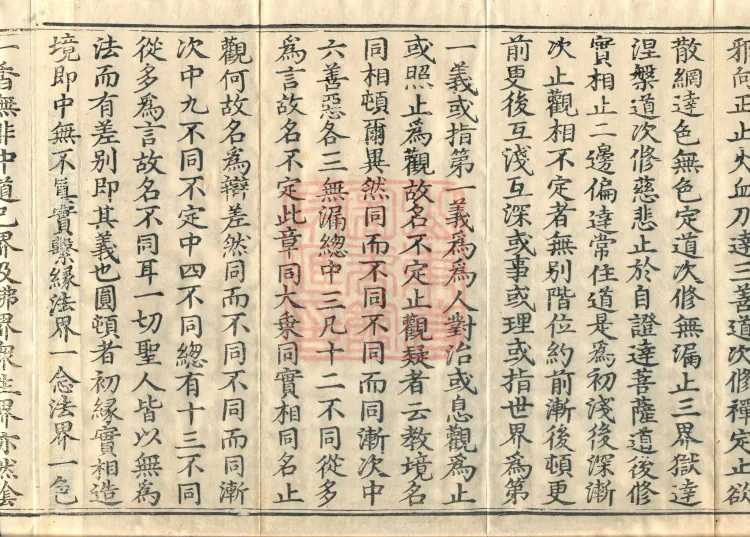 邪向正止火血刀達三善道次修禪定止欲
散網達色無色定道次修無漏止三界獄達
涅槃道次修慈悲止於自證達菩薩道後修
實相止二邊偏達常住道是爲初淺後深漸
次止觀相不定者無別階位約前漸後頓更
前更後互淺互深或事或理或指世界爲第
一義或指第一義爲爲人對治或息觀爲止
或照止爲觀故名不定止觀疑者云教境名
同相頓爾異然同而不同不同而同漸次中
六善惡各三無漏總中三凡十二不同從多
爲言故名不定此章同大乘同實相同名止
觀何故名爲辯差然同而不同不同而同漸
次中九不同不定中四不同總有十三不同
從多爲言故名不同耳一切聖人皆以無爲
法而有差別即其義也圓頓者初緣實相造
境即中無不眞實繫緣法界一念法界一色
一香無非中道己界及佛界衆生界亦然陰